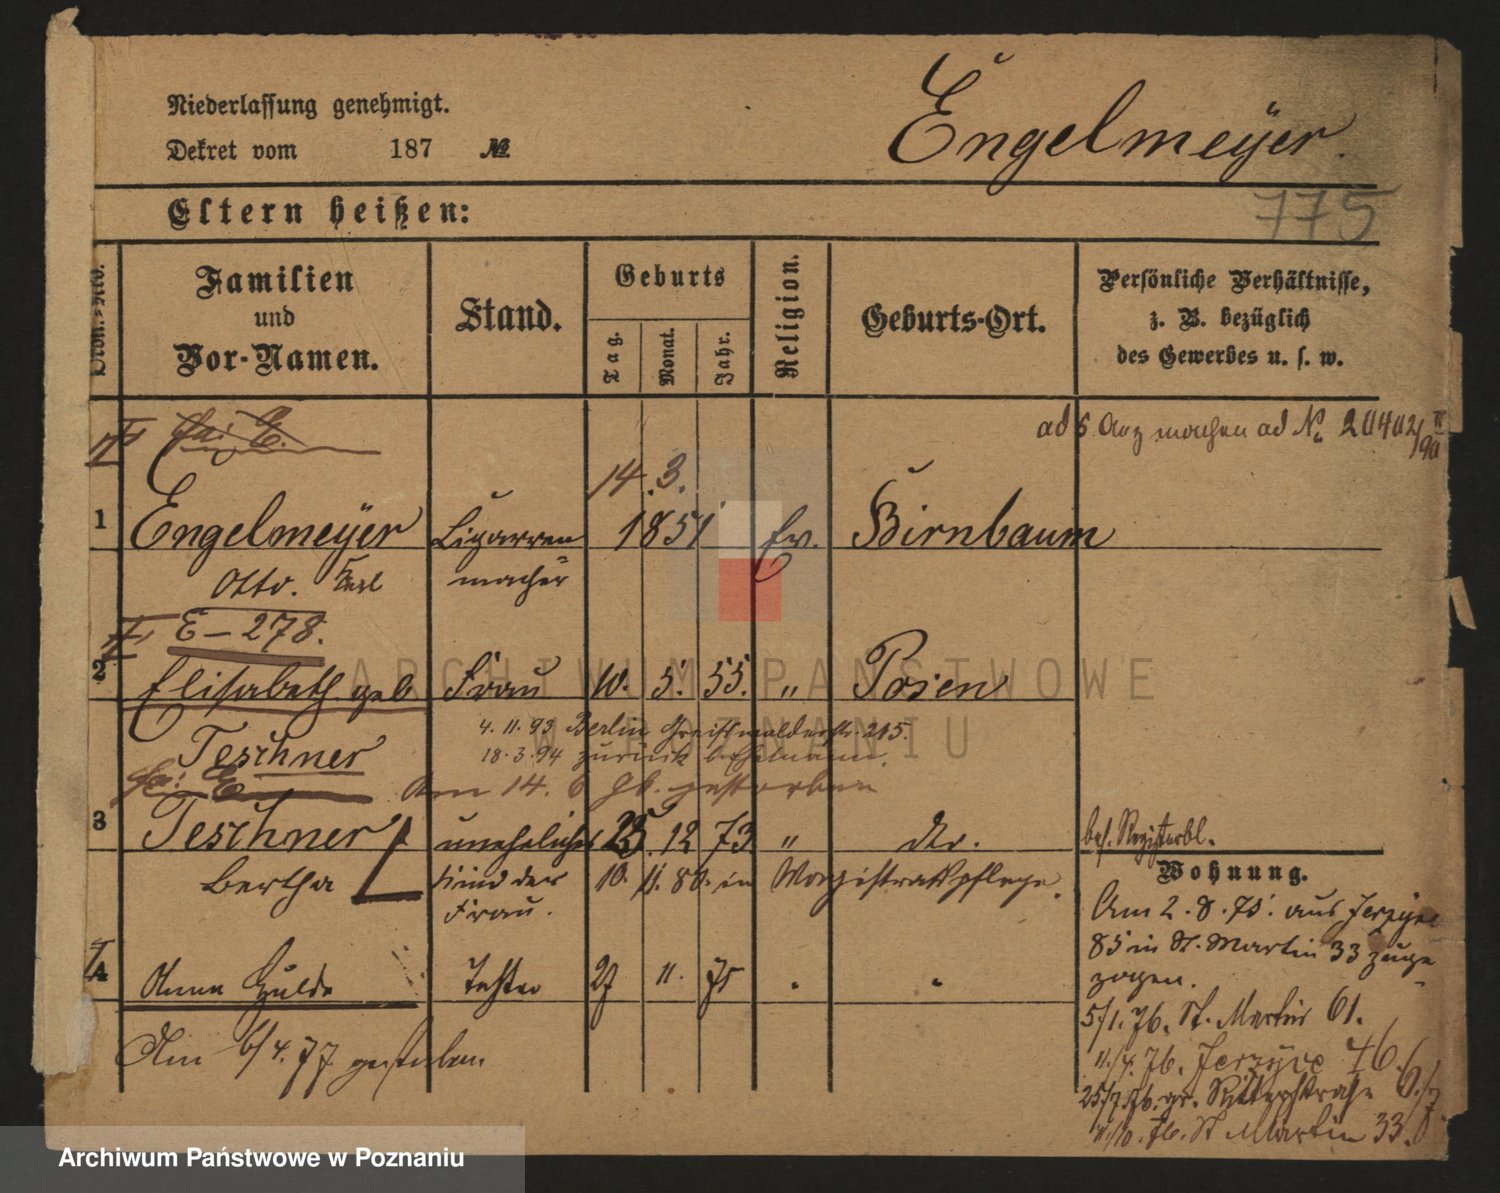 Niederlassung genehmigt.
Dekret vom 187 №
Engelmeÿer.
775
Eltern heißen:
Ordn.-No.
Familien und Vor-Namen.
Stand.
Geburts
Tag.
Monat.
Jahr.
Religion.
Geburts-Ort.
Persönliche Verhältnisse,
z. B. bezüglich
des Gewerbes u. s. w.
ad 6 machen ad No 20402
14. 3.
1 Engelmeÿer Cigarren 1851 Ev. Birnbaum
Otto. Karl macher
E – 278.
2 Elisabeth geb Frau 10. 5. 55. " Posen
4.11.93 Berlin Greifswalderstr. 215.
Teschner 18.3.94 zurück
Am 14. 6 gestorben
3 Teschner unehelicher 25. 12 73 " do.
bes. Registerbl.
Bertha Kind der 10. 11. 80. in Magistratspflege.
Frau.
Wohnung.
Am 2.8.75. aus Jerzyce
85 in St. Martin 33 zuge
zogen.
4 Anna Hulda Tochter 27 11. 75
5/1. 76. St. Martin 61.
Am 6/4.77 gestorben
11./4. 76. Jerzyce 46.
25/7.76. gr. Ritterstraße 6.
11/10. 76. St Martin 33.
ARCHIWUM PAŃSTWOWE
W POZNANIU
Archiwum Państwowe w Poznaniu